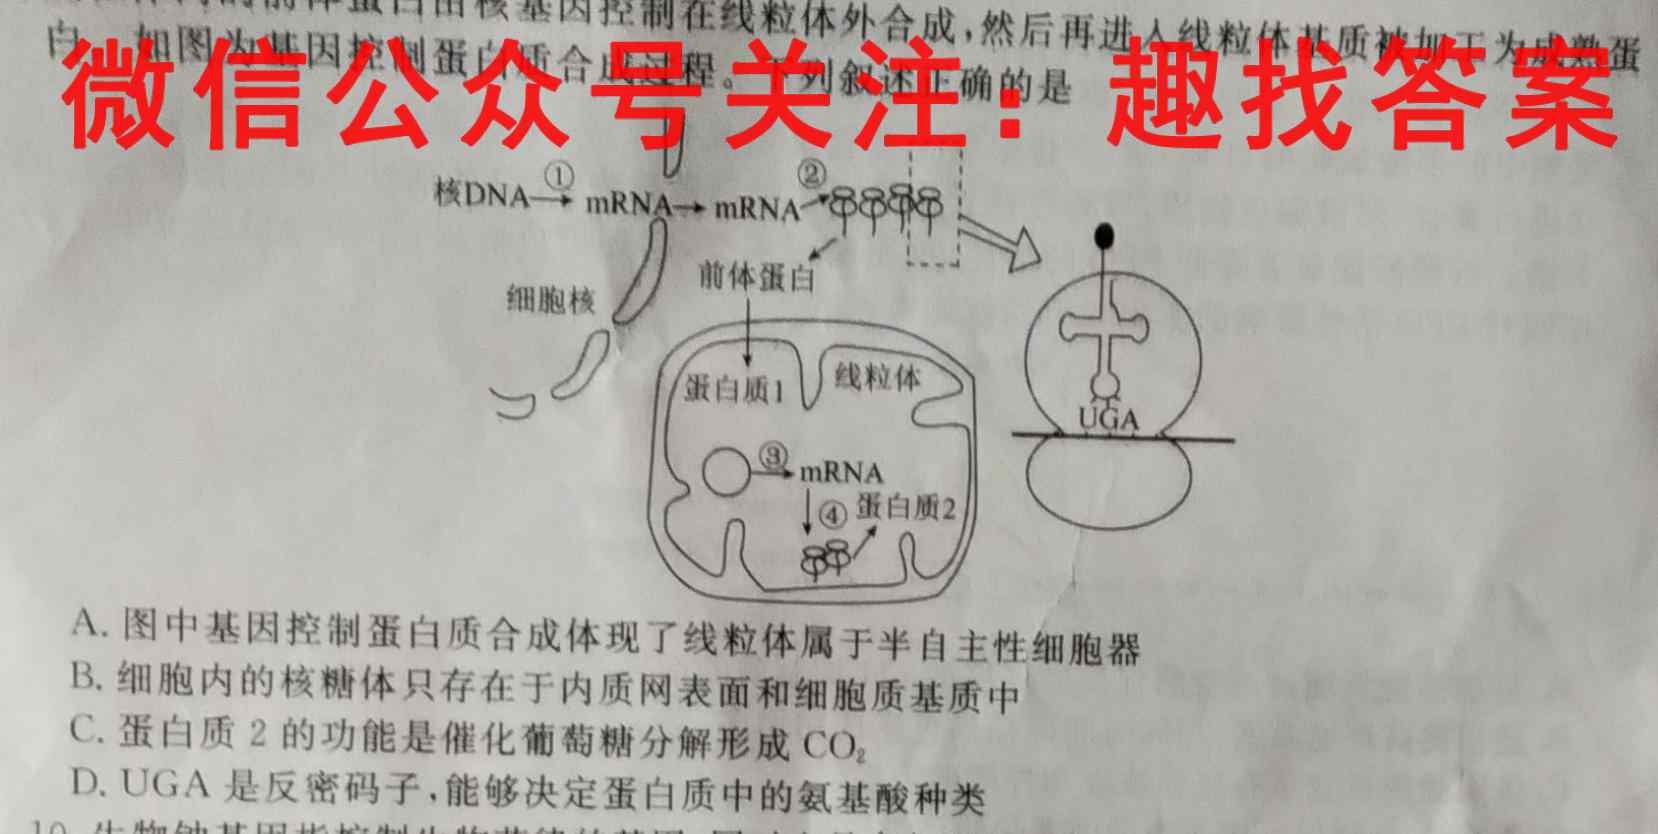 前体蛋白由核基因控制在线粒体外合成，然后再进入线粒体基质被加工为成熟蛋
白。如图为基因控制蛋白质合成过程。下列叙述正确的是
微信公众号关注：趣找答案
核DNA ① mRNA mRNA ②
前体蛋白
细胞核
蛋白质1 线粒体
UGA
③ mRNA
④ 蛋白质2
A. 图中基因控制蛋白质合成体现了线粒体属于半自主性细胞器
B. 细胞内的核糖体只存在于内质网表面和细胞质基质中
C. 蛋白质 2 的功能是催化葡萄糖分解形成 CO₂
D. UGA 是反密码子，能够决定蛋白质中的氨基酸种类